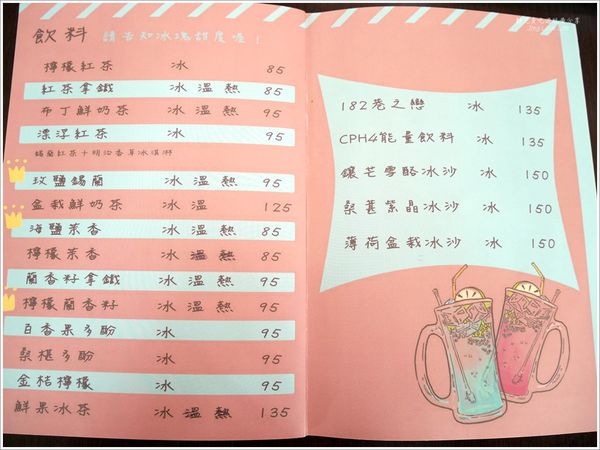 飲料 請告知冰塊甜度喔！
檸檬紅茶 冰 85
紅茶拿鐵 冰 溫 熱 85
布丁鮮奶茶 冰 溫 熱 95
漂浮紅茶 冰 95
錫蘭紅茶＋明治香草冰淇淋
玫鹽錫蘭 冰 溫 熱 95
盆栽鮮奶茶 冰 溫 125
海鹽茉香 冰 溫 熱 85
檸檬茉香 冰 溫 熱 85
蘭香籽拿鐵 冰 溫 熱 95
檸檬蘭香籽 冰 溫 熱 95
百香果多酚 冰 95
桑椹多酚 冰 95
金桔檸檬 冰 95
鮮果冰茶 冰 溫 熱 135
182巷之戀 冰 135
CPH4能量飲料 冰 135
鑲芒雪酪冰沙 冰 150
桑葚紫晶冰沙 冰 150
薄荷盆栽冰沙 冰 150